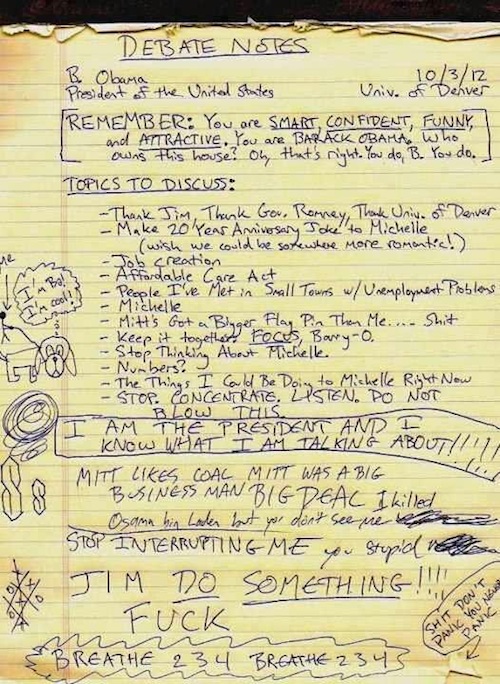 DEBATE NOTES
B. Obama 10/3/12
President of the United States Univ. of Denver
REMEMBER: You are SMART, CONFIDENT, FUNNY,
and ATTRACTIVE. You are BARACK OBAMA. Who
owns this house? Oh, that's right. You do, B. You do.
TOPICS TO DISCUSS:
- Thank Jim, Thank Gov. Romney, Thank Univ. of Denver
- Make 20 Year Anniversary Joke to Michelle
(wish we could be somewhere more romantic!)
- Job creation
- Affordable Care Act
- People I've Met in Small Towns w/ Unemployment Problems
- Michelle
- Mitt's Got a Bigger Flag Pin Than Me.... Shit
- Keep it together. FOCUS, Barry-O.
- Stop Thinking About Michelle.
- Numbers?
- The Things I Could Be Doing to Michelle Right Now
- STOP. CONCENTRATE. LISTEN. DO NOT
BLOW THIS.
me
I'm Bo!
I'm cool!
I AM THE PRESIDENT AND I
KNOW WHAT I AM TALKING ABOUT!!!!!
MITT LIKES COAL MITT WAS A BIG
BUSINESS MAN BIG DEAL I killed
Osama bin Laden but you don't see me
STOP INTERRUPTING ME you stupid
JIM DO SOMETHING!!!!
FUCK
SHIT DON'T
PANIC YOU NEVER
PANIC
BREATHE 2 3 4 BREATHE 2 3 4 5